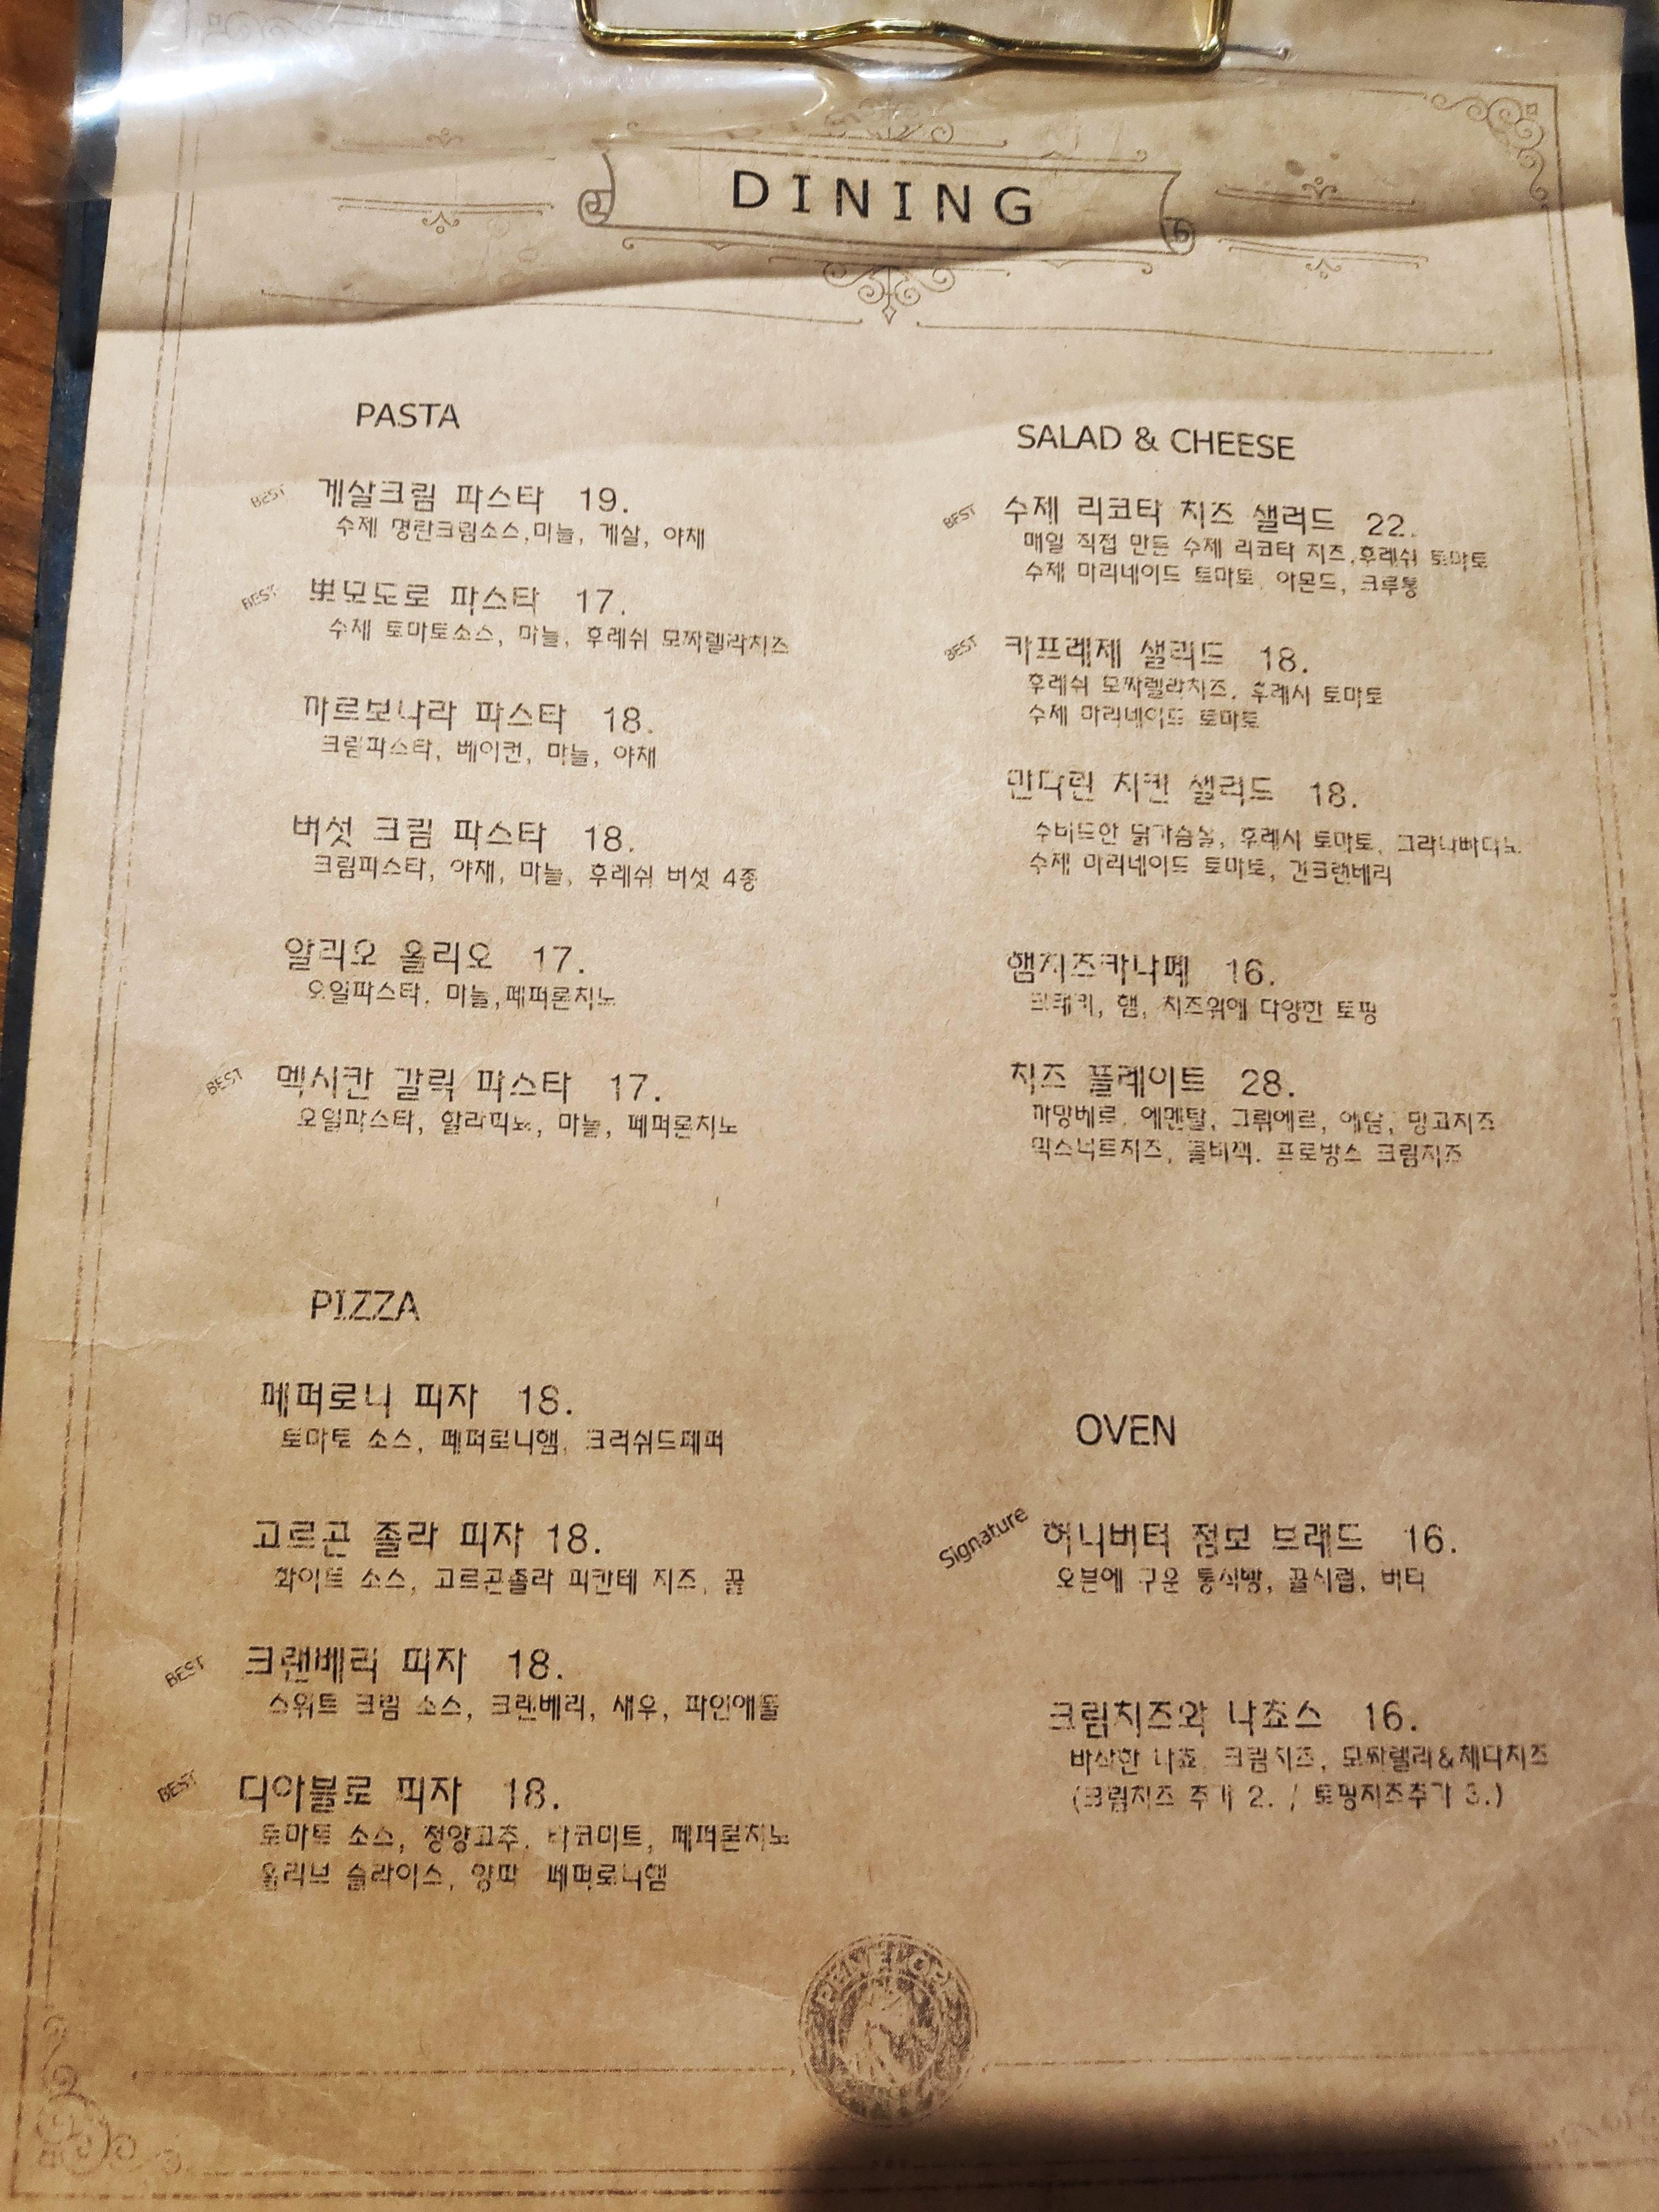 DINING
PASTA
BEST 게살크림 파스타 19.
수제 명란크림소스,마늘, 게살, 야채
BEST 뽀모도로 파스타 17.
수제 토마토소스, 마늘, 후레쉬 모짜렐라치즈
까르보나라 파스타 18.
크림파스타, 베이컨, 마늘, 야채
버섯 크림 파스타 18.
크림파스타, 야채, 마늘, 후레쉬 버섯 4종
알리오 올리오 17.
오일파스타, 마늘,페퍼론치노
BEST 멕시칸 갈릭 파스타 17.
오일파스타, 할라피뇨, 마늘, 페퍼론치노
PIZZA
페퍼로니 피자 18.
토마토 소스, 페퍼로니햄, 크러쉬드페퍼
고르곤 졸라 피자 18.
화이트 소스, 고르곤졸라 피칸테 치즈, 꿀
BEST 크랜베리 피자 18.
스위트 크림 소스, 크랜베리, 새우, 파인애플
BEST 디아블로 피자 18.
토마토 소스, 청양고추, 타코미트, 페퍼론치노
올리브 슬라이스, 양파 페퍼로니햄
SALAD & CHEESE
BEST 수제 리코타 치즈 샐러드 22.
매일 직접 만든 수제 리코타 치즈,후레쉬 토마토
수제 마리네이드 토마토, 아몬드, 크루통
BEST 카프레제 샐러드 18.
후레쉬 모짜렐라치즈, 후레시 토마토
수제 마리네이드 토마토
만다린 치킨 샐러드 18.
수비드한 닭가슴살, 후레시 토마토, 그라나빠다노
수제 마리네이드 토마토, 건크랜베리
햄치즈카나페 16.
크래커, 햄, 치즈위에 다양한 토핑
치즈 플레이트 28.
까망베르, 에멘탈, 그뤼에르, 에담, 망고치즈
믹스너트치즈, 콜비잭, 프로방스 크림치즈
OVEN
Signature 허니버터 점보 브래드 16.
오븐에 구운 통식빵, 꿀시럽, 버터
크림치즈와 나쵸스 16.
바삭한 나쵸, 크림치즈, 모짜렐라&체다치즈
(크림치즈 추가 2. / 토핑치즈추가 3.)
PENELOPE